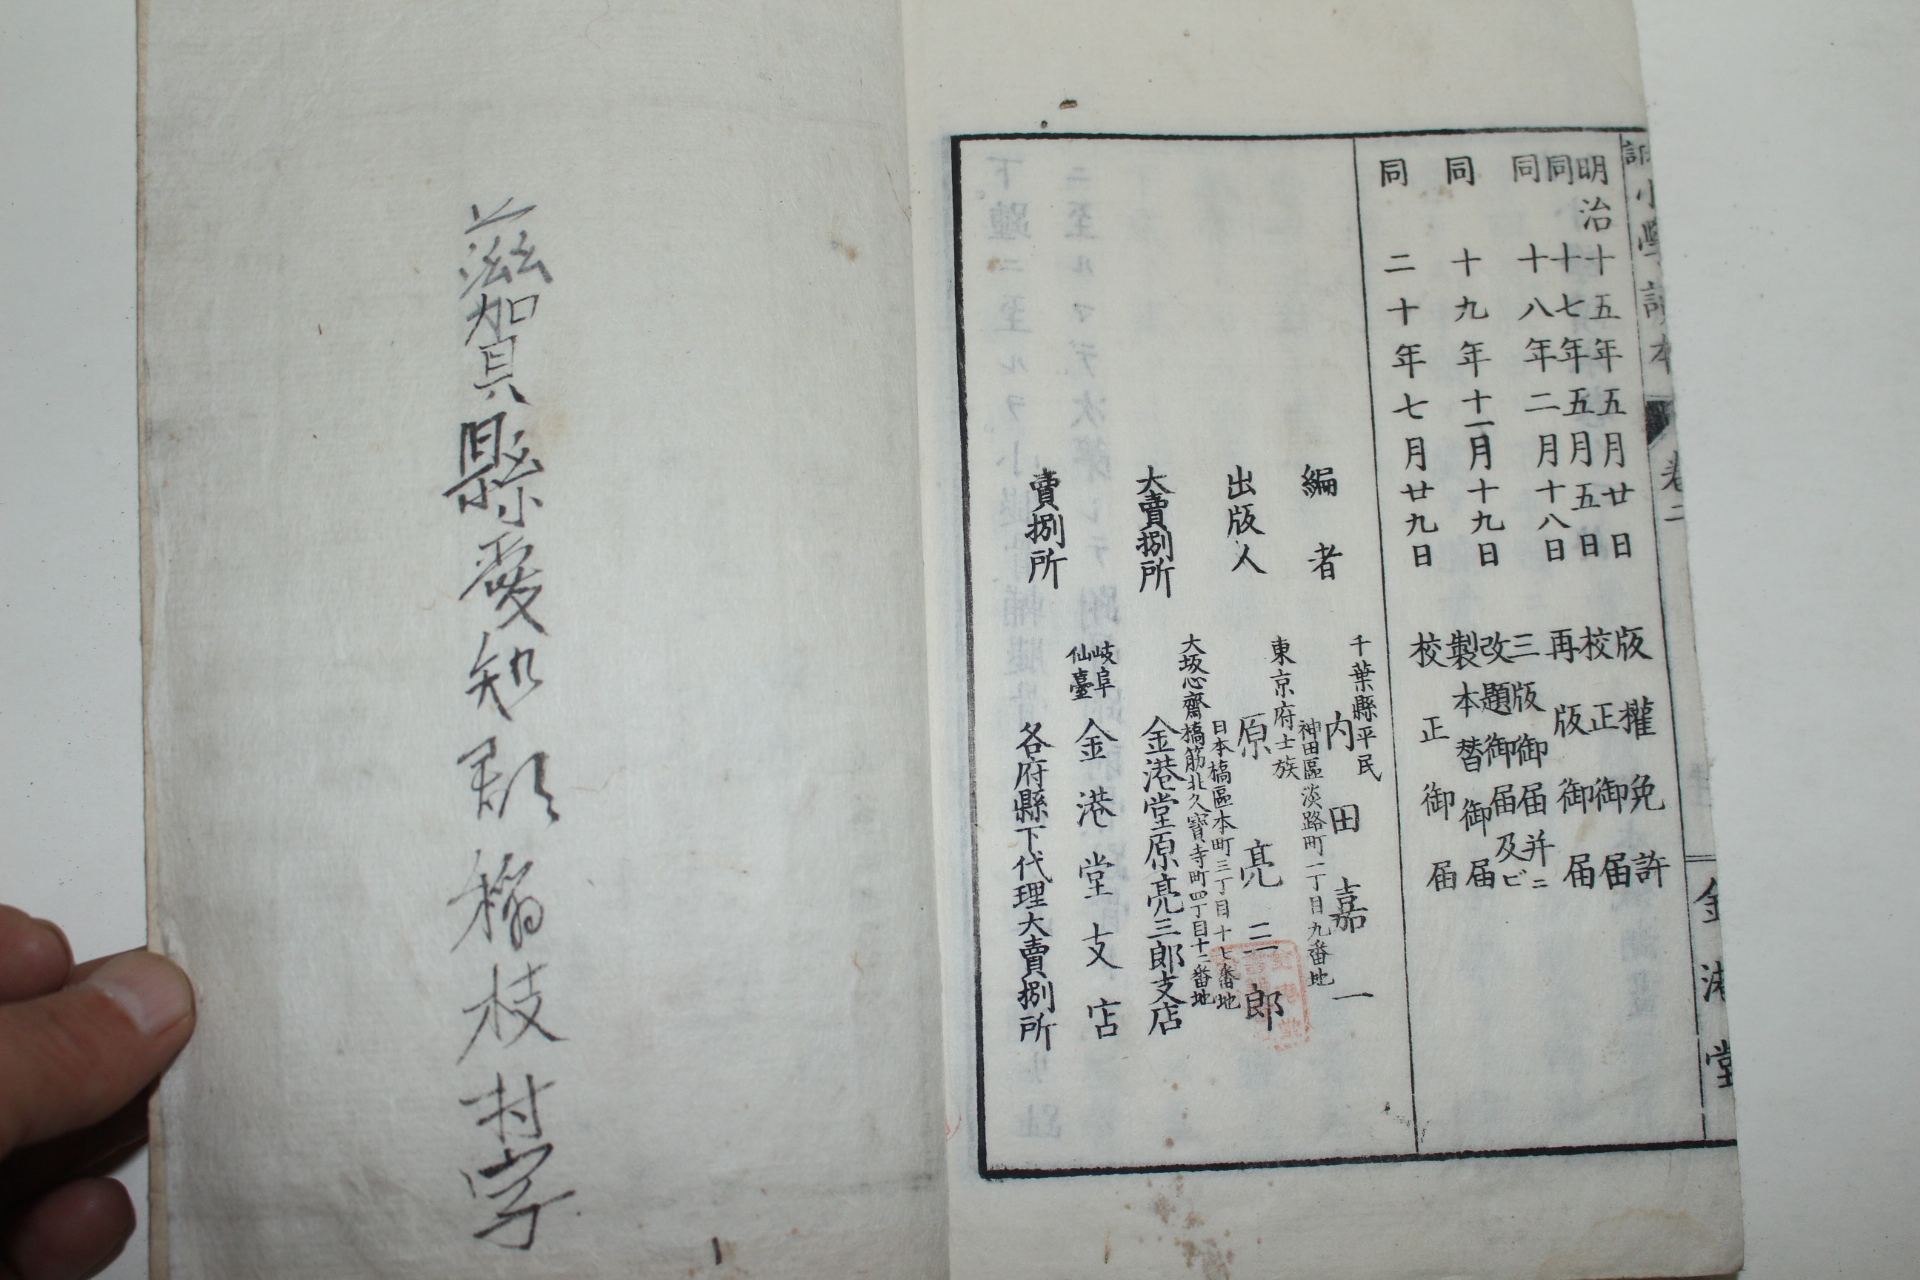 小學讀本
卷二
金港堂
明治十五年五月廿日 版權免許
同十七年五月五日 校正御届
同十八年二月十八日 再版御届
三版御届并ニ
改題御届及ビ
同十九年十一月十九日 製本替御届
同二十年七月廿九日 校正御届
編者
千葉縣平民
內田嘉一
神田區淡路町一丁目九番地
出版人
東京府士族
原亮三郎
日本橋區本町三丁目十七番地
大賣捌所
大坂心齋橋筋北久寶寺町四丁目十二番地
金港堂原亮三郎支店
岐阜
仙臺
金港堂支店
賣捌所
各府縣下代理大賣捌所
滋賀縣愛知郡稲枝村字